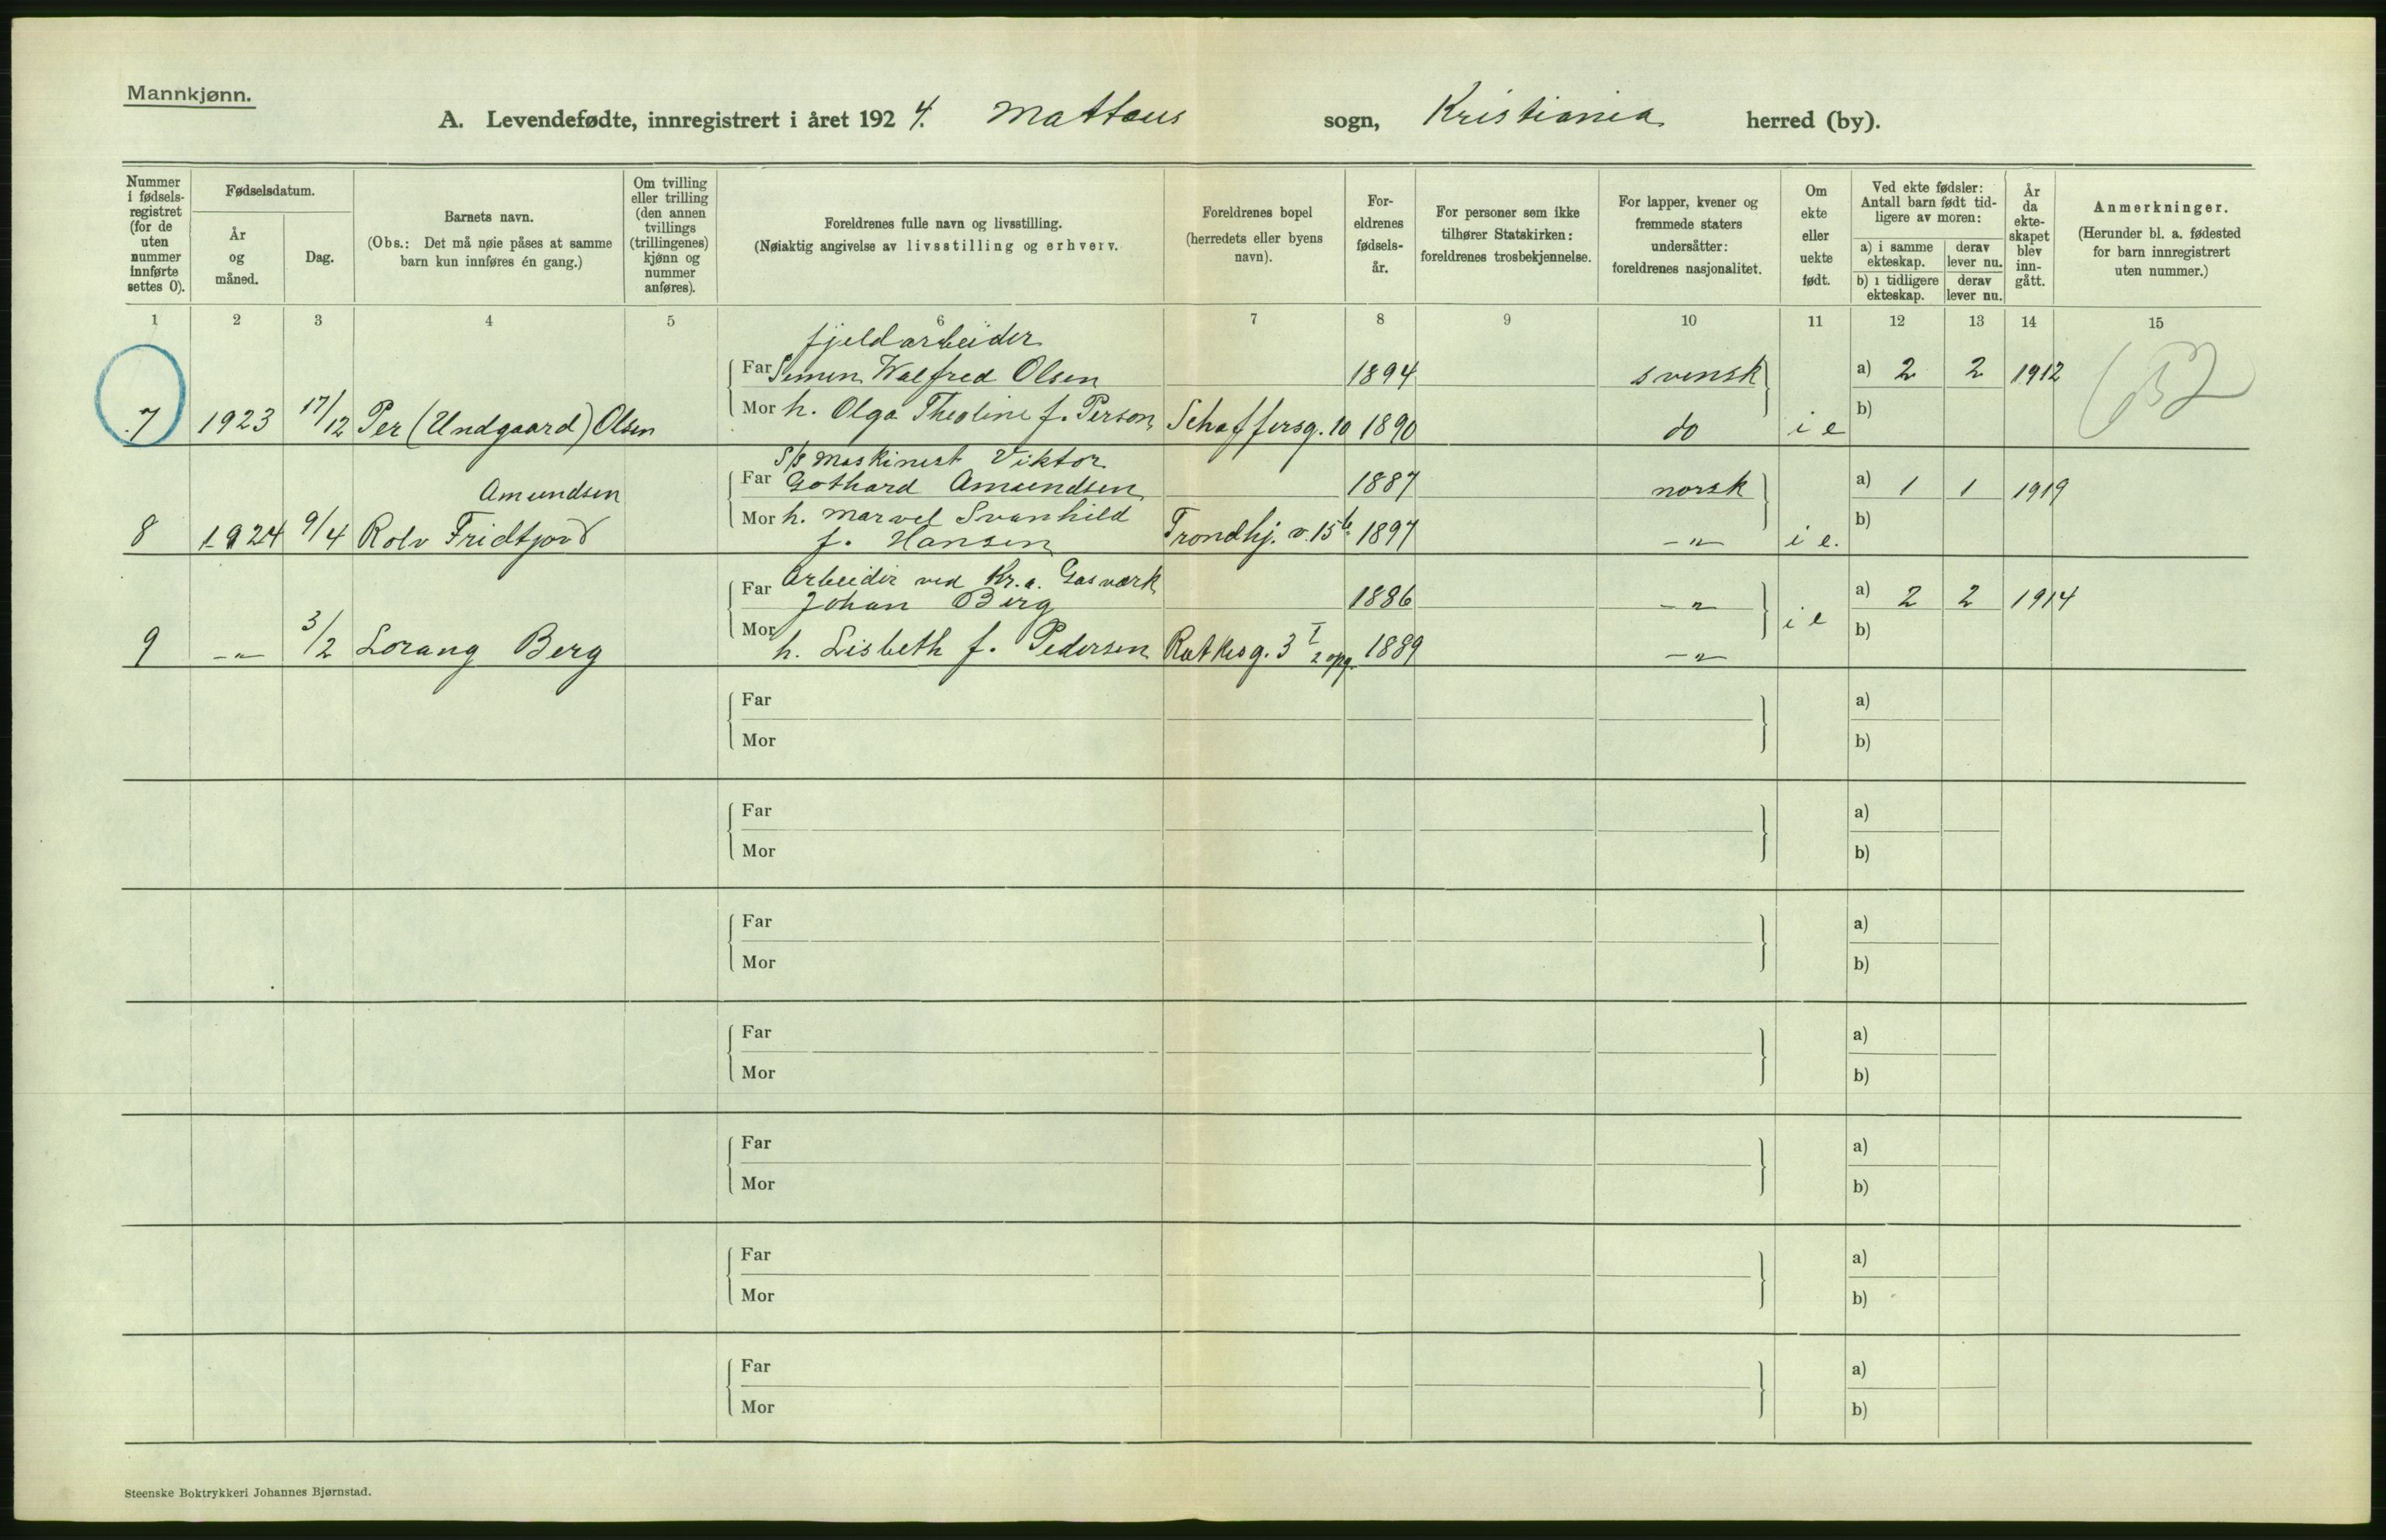 Mannkjønn.
A. Levendefødte, innregistrert i året 1924. Mattæus sogn, Kristiania herred (by).
Nummer i fødsels-registret (for de uten nummer innførte settes 0).
Fødselsdatum.
År og måned.
Dag.
Barnets navn.
(Obs.: Det må nøie påses at samme barn kun innføres én gang.)
Om tvilling eller trilling (den annen tvillings (trillingenes) kjønn og nummer anføres).
Foreldrenes fulle navn og livsstilling.
(Nøiaktig angivelse av livsstilling og erhverv.
Foreldrenes bopel (herredets eller byens navn).
For-eldrenes fødsels-år.
For personer som ikke tilhører Statskirken: foreldrenes trosbekjennelse.
For lapper, kvener og fremmede staters undersåtter: foreldrenes nasjonalitet.
Om ekte eller uekte født.
Ved ekte fødsler: Antall barn født tid-ligere av moren:
a) i samme ekteskap.
derav lever nu.
b) i tidligere ekteskap.
derav lever nu.
År da ekte-skapet blev inn-gått.
Anmerkninger.
(Herunder bl. a. fødested for barn innregistrert uten nummer.)
1 2 3 4 5 6 7 8 9 10 11 12 13 14 15
fjeldarbeider
Far Simen Walfred Olsen 1894 svensk a) 2 2 1912
7 1923 17/12 Per (Undgaard) Olsen Mor h. Olga Theoline f. Person Schaffersg. 10 1890 do i e b)
S/S maskinist Viktor
Amundsen Far Gothard Amundsen 1887 norsk a) 1 1 1919
Mor h. Marvel Svanhild b)
8 1924 9/4 Rolv Fridtjov f. Hansen Trondhj. v. 15 b. 1897 -"- i e.
Arbeider ved Kr.a. Gasværk
Far Johan Berg 1886 -"- a) 2 2 1914
9 -"- 3/2 Lorang Berg Mor h. Lisbeth f. Pedersen Ratkesg. 3 I 2 opg. 1889 -"- i e b)
Far a)
Mor b)
Far a)
Mor b)
Far a)
Mor b)
Far a)
Mor b)
Far a)
Mor b)
Far a)
Mor b)
Far a)
Mor b)
Steenske Boktrykkeri Johannes Bjørnstad.